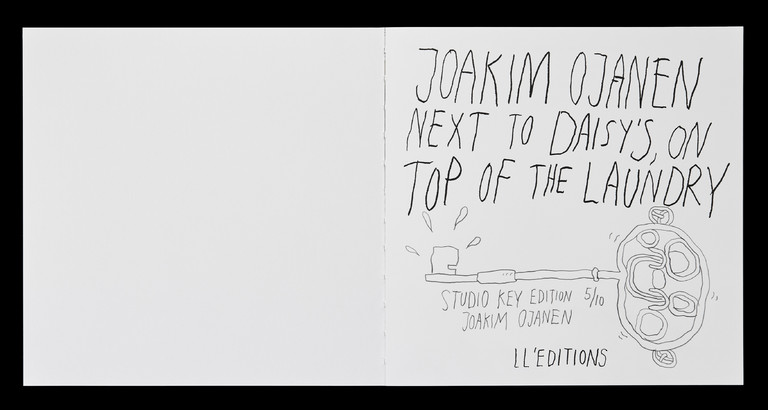 JOAKIM OJANEN
NEXT TO DAISY'S, ON
TOP OF THE LAUNDRY
STUDIO KEY EDITION 5/10
JOAKIM OJANEN
LL'EDITIONS